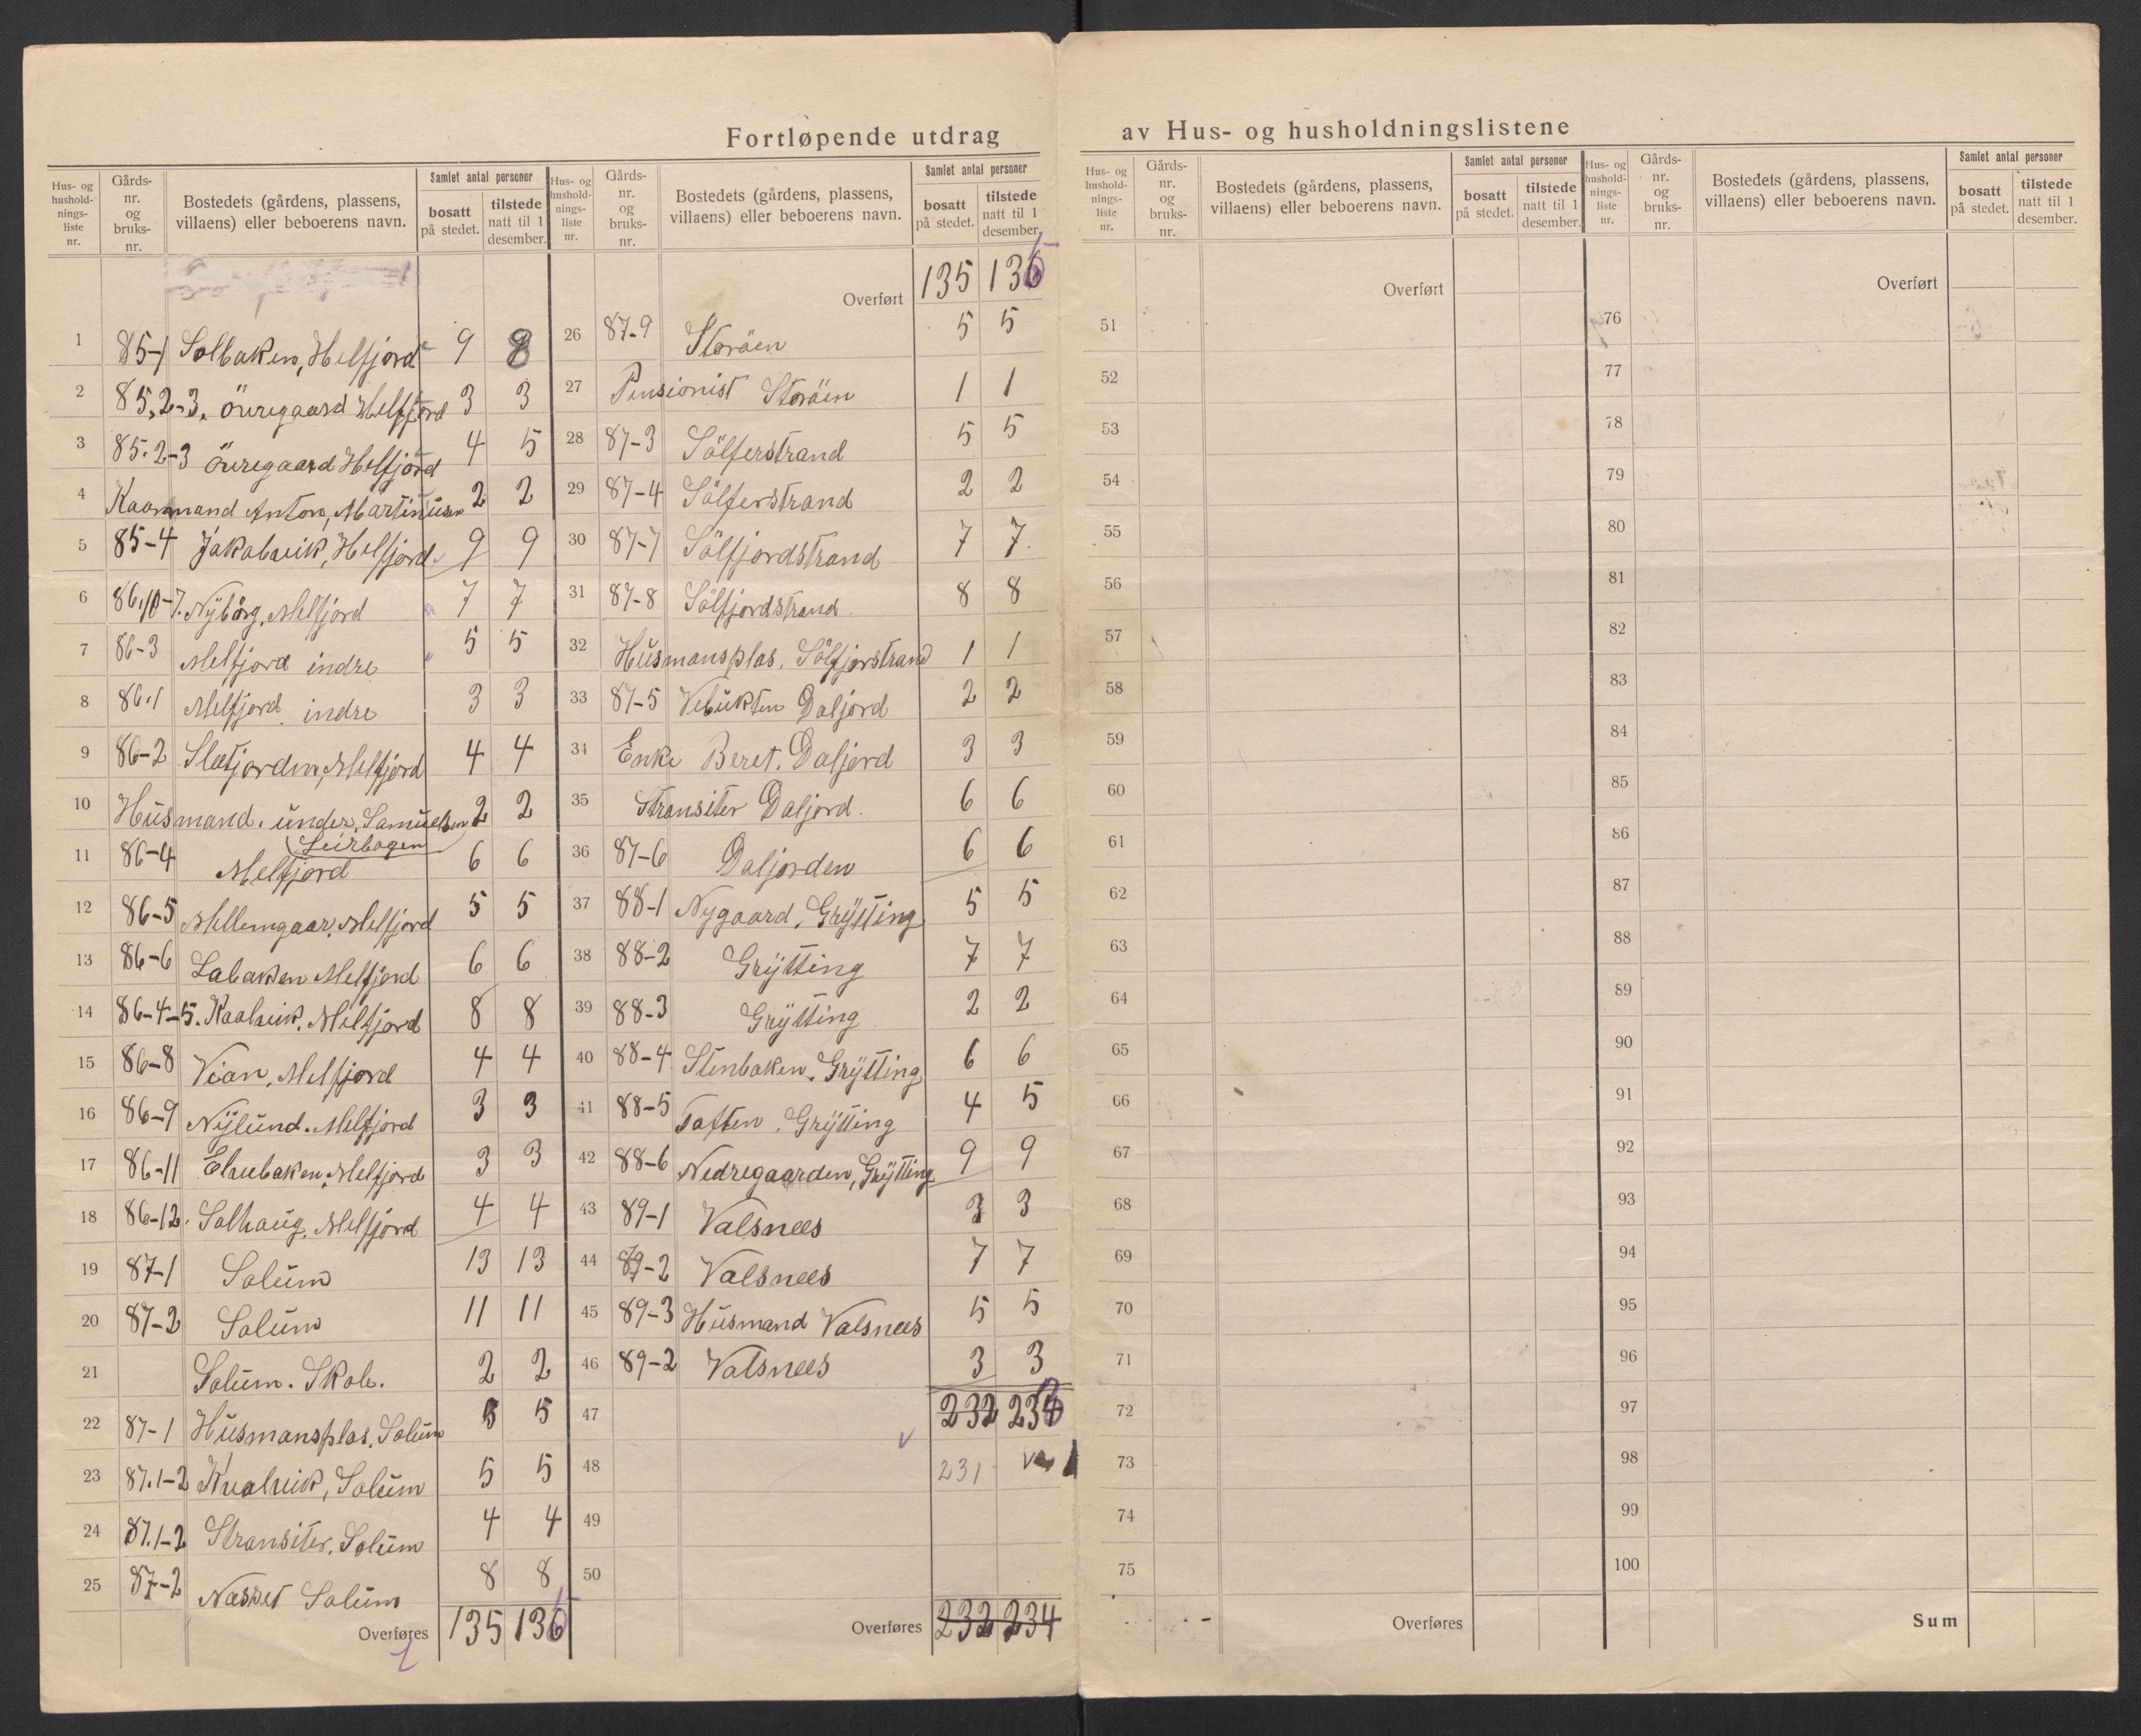 Fortløpende utdrag av Hus- og husholdningslistene
Hus- og husholdnings-liste nr. Gårds-nr. og bruks-nr. Bostedets (gårdens, plassens, villaens) eller beboerens navn. Samlet antal personer bosatt på stedet. tilstede natt til 1 desember.
1 85-1 Solbaken, Helfjord 9 8
2 85,2-3. Övregaard Helfjord 3 3
3 85.2-3 Övregaard Helfjord 4 5
4 Kaarmand Anton, Martinusen 2 2
5 85-4 Jakobvik, Helfjord 9 9
6 86,10-7. Nyborg, Melfjord 7 7
7 86-3 Melfjord indre 5 5
8 86,1 Melfjord indre 3 3
9 86-2 Sletjorden, Melfjord 4 4
10 Husmand. under. Samuelsen 2 2
11 86-4 Melfjord (Leirbagen) 6 6
12 86-5 Mellemgaar, Melfjord 5 5
13 86-6 Labaken Melfjord 6 6
14 86-4-5. Kaalvik. Melfjord 8 8
15 86-8 Vian, Melfjord 4 4
16 86-9 Nylund. Melfjord 3 3
17 86-11 Elvebaken, Melfjord 3 3
18 86-12. Solhaug, Melfjord 4 4
19 87-1 Solum 13 13
20 87-2 Solum 11 11
21 Solum. Skole. 2 2
22 87-1 Husmansplas, Solum 5 5
23 87.1-2 Kvalvik, Solum 5 5
24 87.1-2 Stransiter. Solum 4 4
25 87-2 Nasset Solum 8 8
Overføres 135 136
Hus- og husholdnings-liste nr. Gårds-nr. og bruks-nr. Bostedets (gårdens, plassens, villaens) eller beboerens navn. Samlet antal personer bosatt på stedet. tilstede natt til 1 desember.
Overført 135 136
26 87-9 Storöen 5 5
27 Pensionist Storöen 1 1
28 87-3 Sölferstrand 5 5
29 87-4 Sölferstrand 2 2
30 87-7 Sölfjordstrand 7 7
31 87-8 Sölfjordstrand 8 8
32 Husmansplas. Sölfjorstrand 1 1
33 87-5 Vebukten Daljord 2 2
34 Enke Beret. Daljord 3 3
35 Stransiter Daljord. 6 6
36 87-6 Daljorden 6 6
37 88-1 Nygaard, Grytting 5 5
38 88-2 Grytting 7 7
39 88-3 Grytting 2 2
40 88-4 Stenbaken, Grytting 6 6
41 88-5 Toften, Grytting 4 5
42 88-6 Nedregaarden, Grytting 9 9
43 89-1 Valsnees 3 3
44 89-2 Valsnees 7 7
45 89-3 Husmand Valsnees 5 5
46 89-2 Valsnees 3 3
47 232 234
48 231
49
50
Overføres 232 234
Hus- og husholdnings-liste nr. Gårds-nr. og bruks-nr. Bostedets (gårdens, plassens, villaens) eller beboerens navn. Samlet antal personer bosatt på stedet. tilstede natt til 1 desember.
Overført
51
52
53
54
55
56
57
58
59
60
61
62
63
64
65
66
67
68
69
70
71
72
73
74
75
Overføres
Hus- og husholdnings-liste nr. Gårds-nr. og bruks-nr. Bostedets (gårdens, plassens, villaens) eller beboerens navn. Samlet antal personer bosatt på stedet. tilstede natt til 1 desember.
Overført
76
77
78
79
80
81
82
83
84
85
86
87
88
89
90
91
92
93
94
95
96
97
98
99
100
Sum